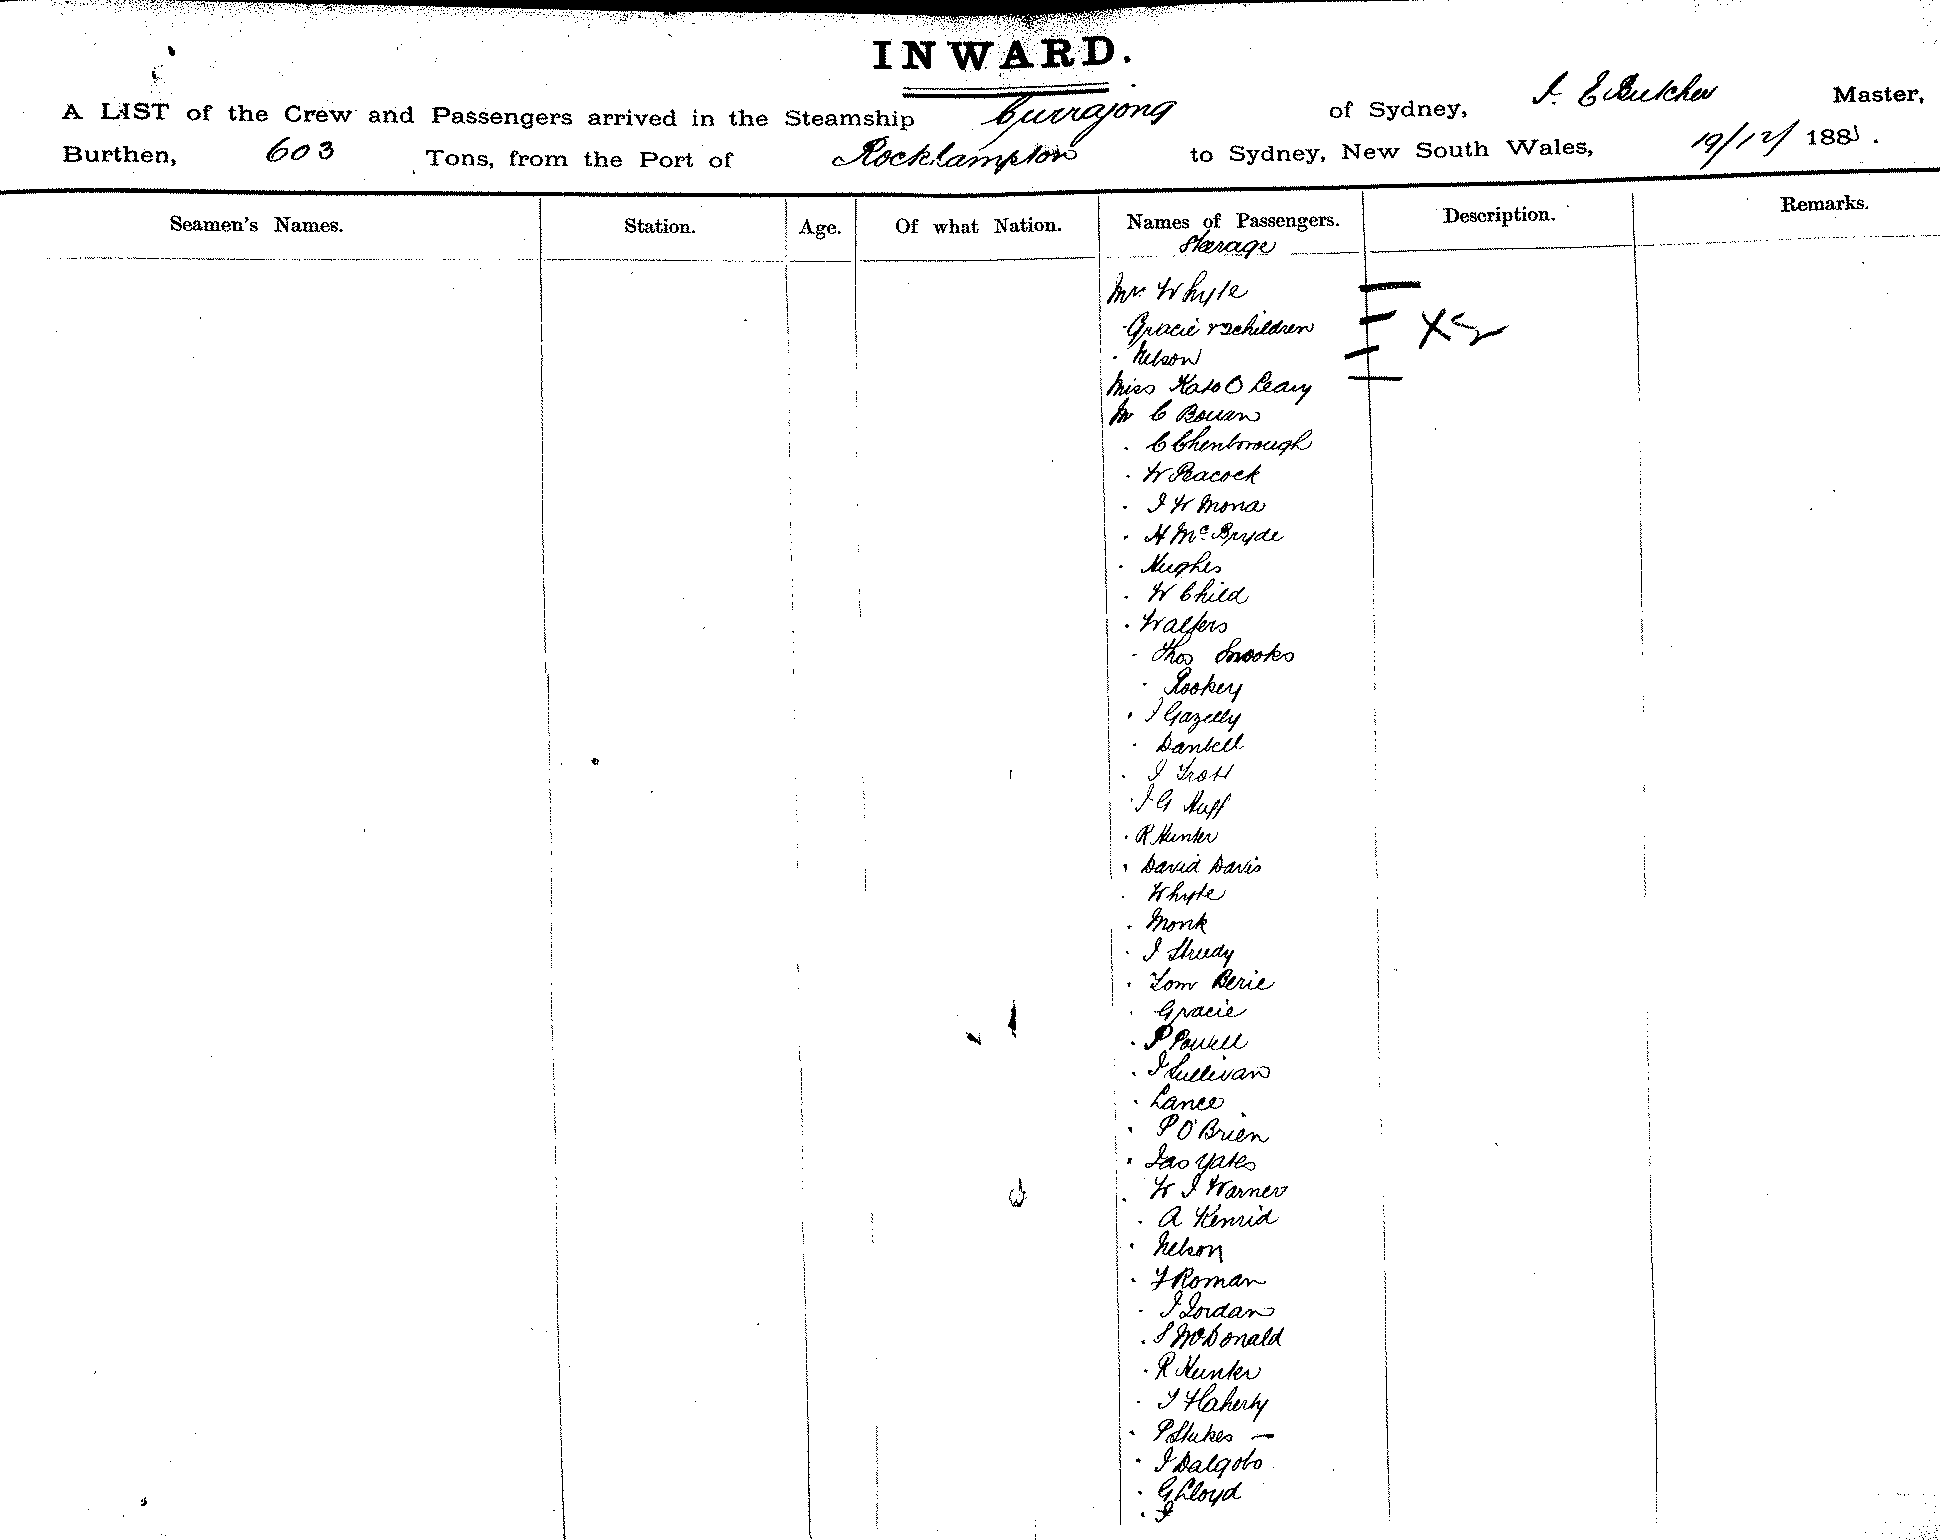 INWARD.
A LIST of the Crew and Passengers arrived in the Steamship Currajong of Sydney, J. E Butcher Master,
Burthen, 603 Tons, from the Port of Rockhampton to Sydney, New South Wales, 19/12/ 1881.
Seamen's Names. Station. Age. Of what Nation. Names of Passengers. Description. Remarks.
Steerage
Mrs Whyte
Gracie & 2 children
Nelson
Miss Kate O Leary
Mr C Bowen
C Chenborough
W Peacock
J W Mona
H McBryde
Hughes
W Child
Walters
Thos Snooks
Rookery
J Gazelly
Dantell
J Trott
J G Huff
R Hunter
David Davis
Whyte
Monk
J Strudy
Tom Berie
Gracie
P Powell
J Sullivan
Lance
P O'Brien
Jas Yates
W J Warner
A Kenrid
Nelson
F Roman
J Jordan
S McDonald
R Hunter
T Flaherty
P Stukes —
J Dalgobo
G Lloyd
J